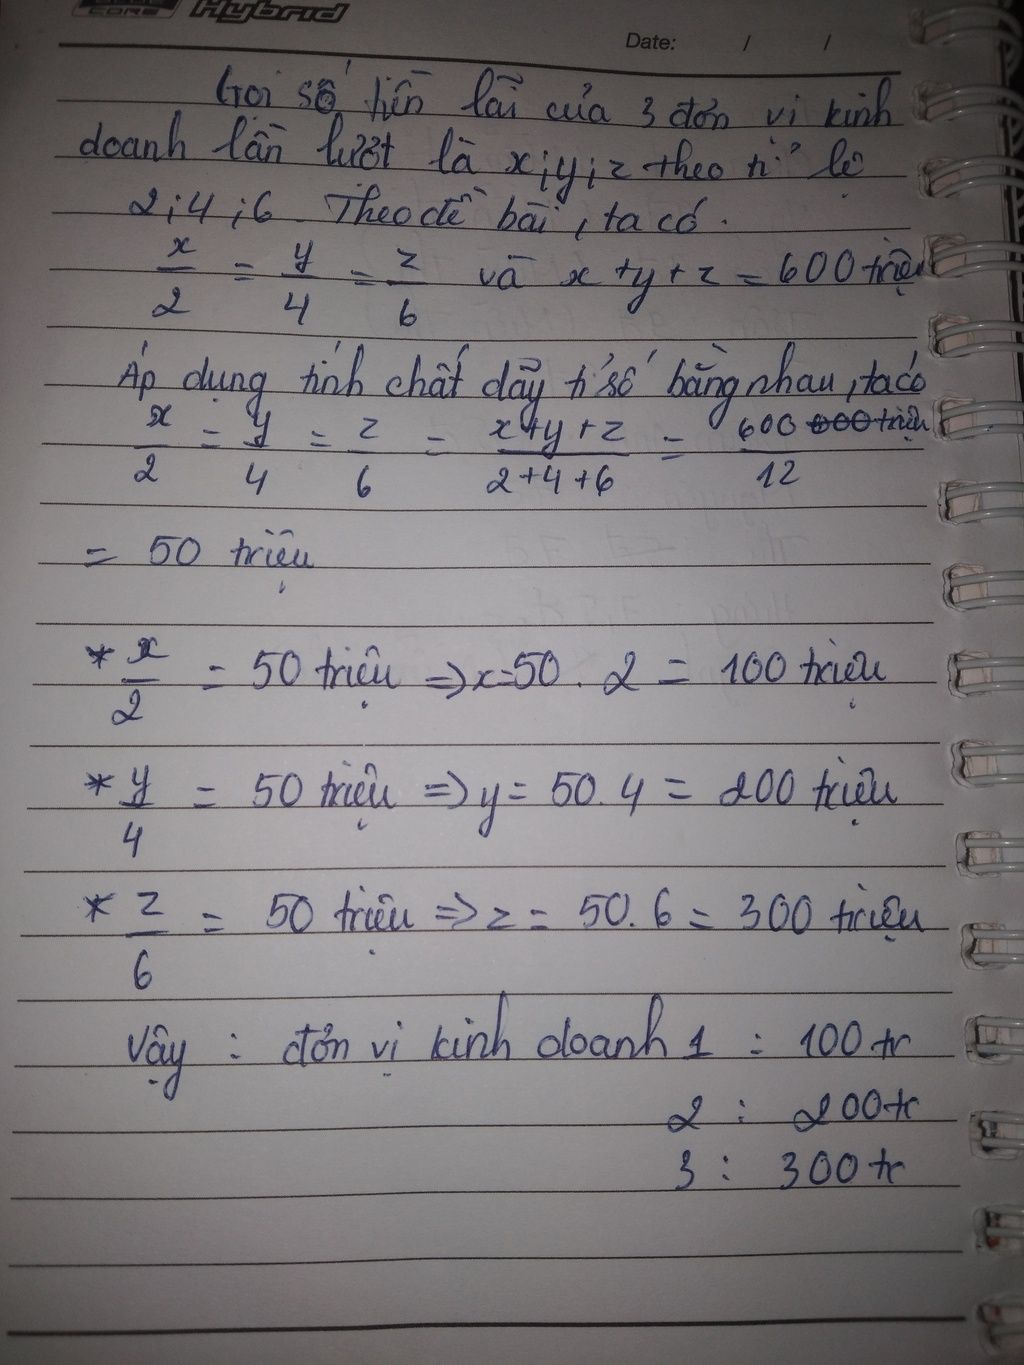 CORE Hybrid
Date: / /
Gọi số tiền lãi của 3 đơn vị kinh
doanh lần lượt là x;y;z theo tỉ lệ
2;4;6. Theo đề bài, ta có.
x/2 = y/4 = z/6 và x+y+z = 600 triệu
Áp dụng tính chất dãy tỉ số bằng nhau, ta có
x/2 = y/4 = z/6 = x+y+z/2+4+6 = 600 000 triệu/12
= 50 triệu
* x/2 = 50 triệu => x=50. 2 = 100 triệu
* y/4 = 50 triệu => y = 50. 4 = 200 triệu
* z/6 = 50 triệu => z = 50. 6 = 300 triệu
Vậy : đơn vị kinh doanh 1 : 100 tr
2 : 200 tr
3 : 300 tr